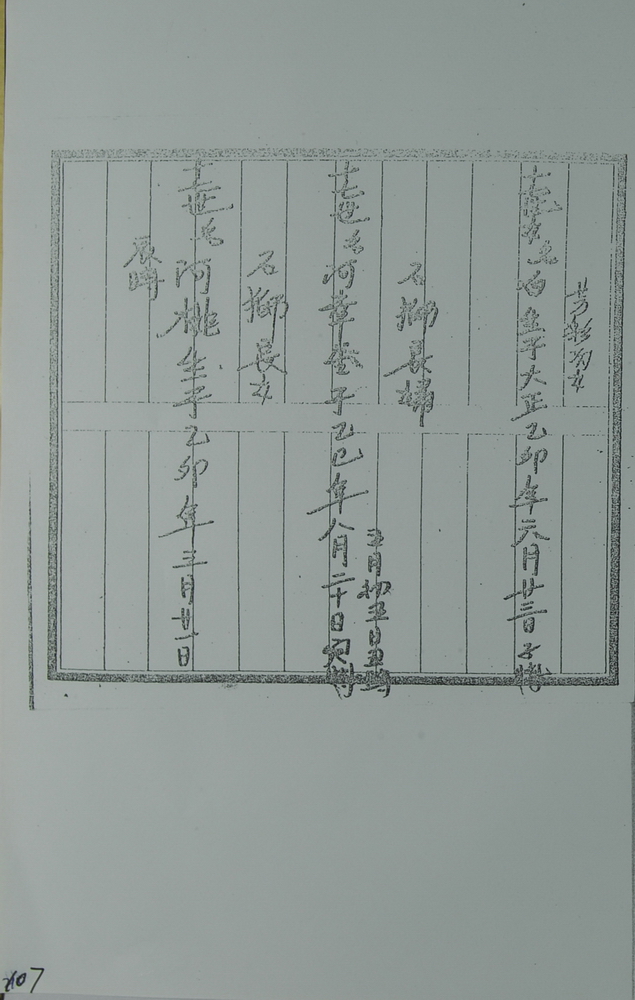 芳彩弟女
十七世女名 生于大正乙卯年六月廿三日子時
石獅長婦
三月初五日丑時
十七世名河章生于乙巳年八月二十日
石獅長女
十七世名河桃生于乙卯年三月廿一日
辰時
2107